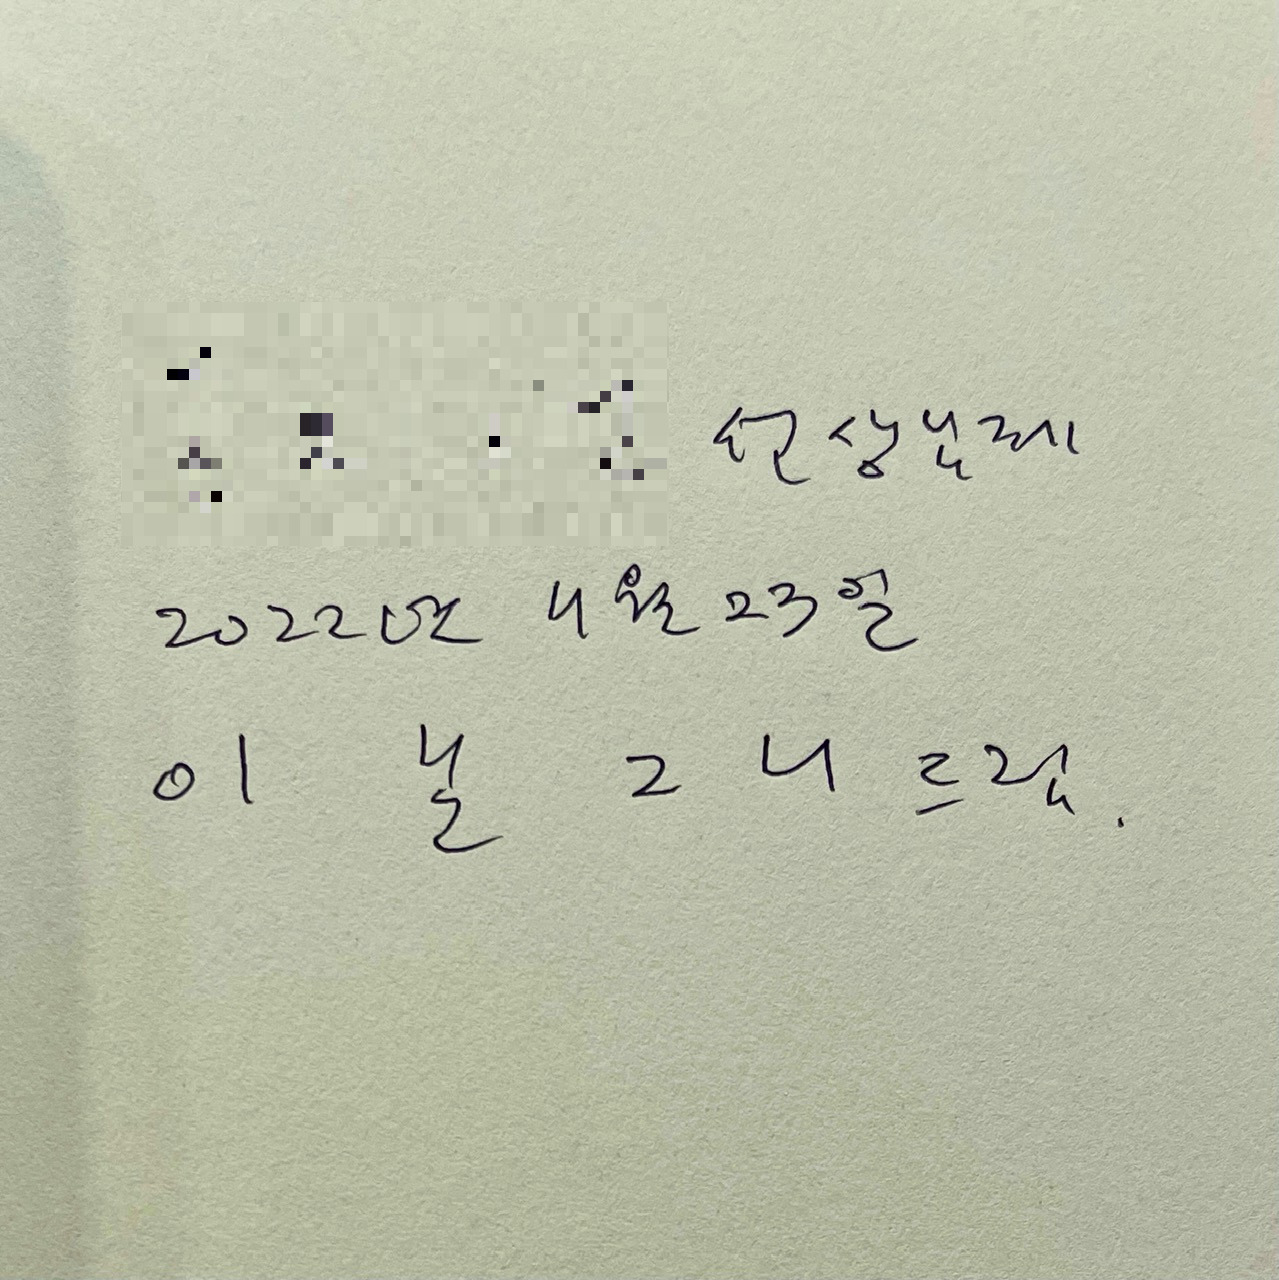 선생님께
2022년 4월 23일
이 날 그 니 드림.